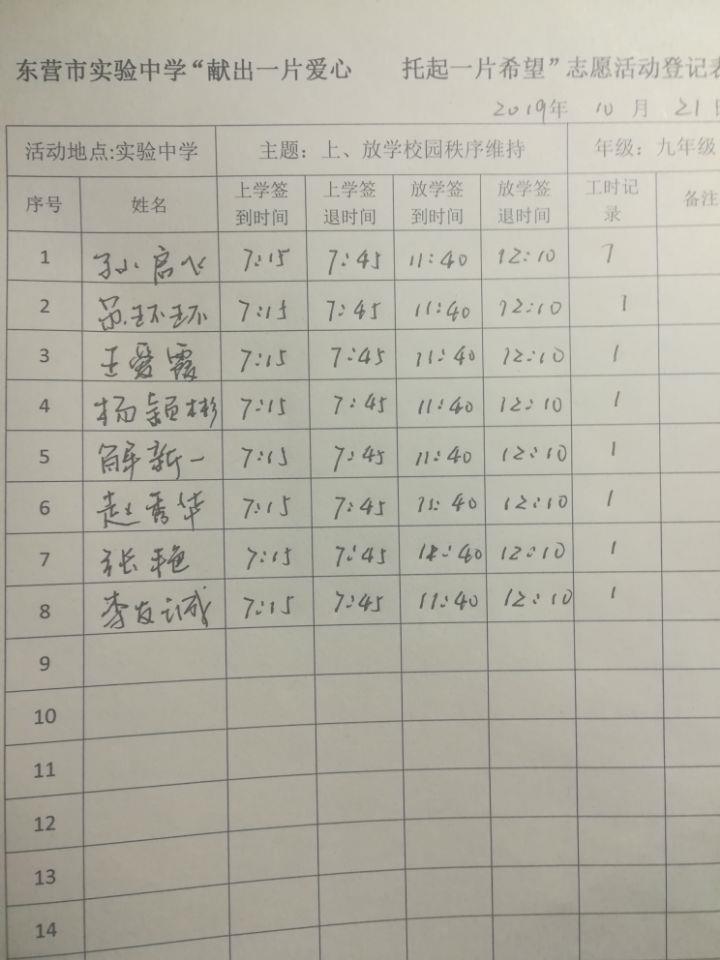 东营市实验中学“献出一片爱心 托起一片希望”志愿活动登记表
2019年 10 月 21日
活动地点:实验中学 主题：上、放学校园秩序维持 年级：九年级
序号 姓名 上学签到时间 上学签退时间 放学签到时间 放学签退时间 工时记录 备注
1 孙启飞 7:15 7:45 11:40 12:10 1
2 环环 7:15 7:45 11:40 12:10 1
3 王爱霞 7:15 7:45 11:40 12:10 1
4 杨颖彬 7:15 7:45 11:40 12:10 1
5 解新一 7:15 7:45 11:40 12:10 1
6 赵秀华 7:15 7:45 11:40 12:10 1
7 张艳 7:15 7:45 11:40 12:10 1
8 李友诚 7:15 7:45 11:40 12:10 1
9
10
11
12
13
14